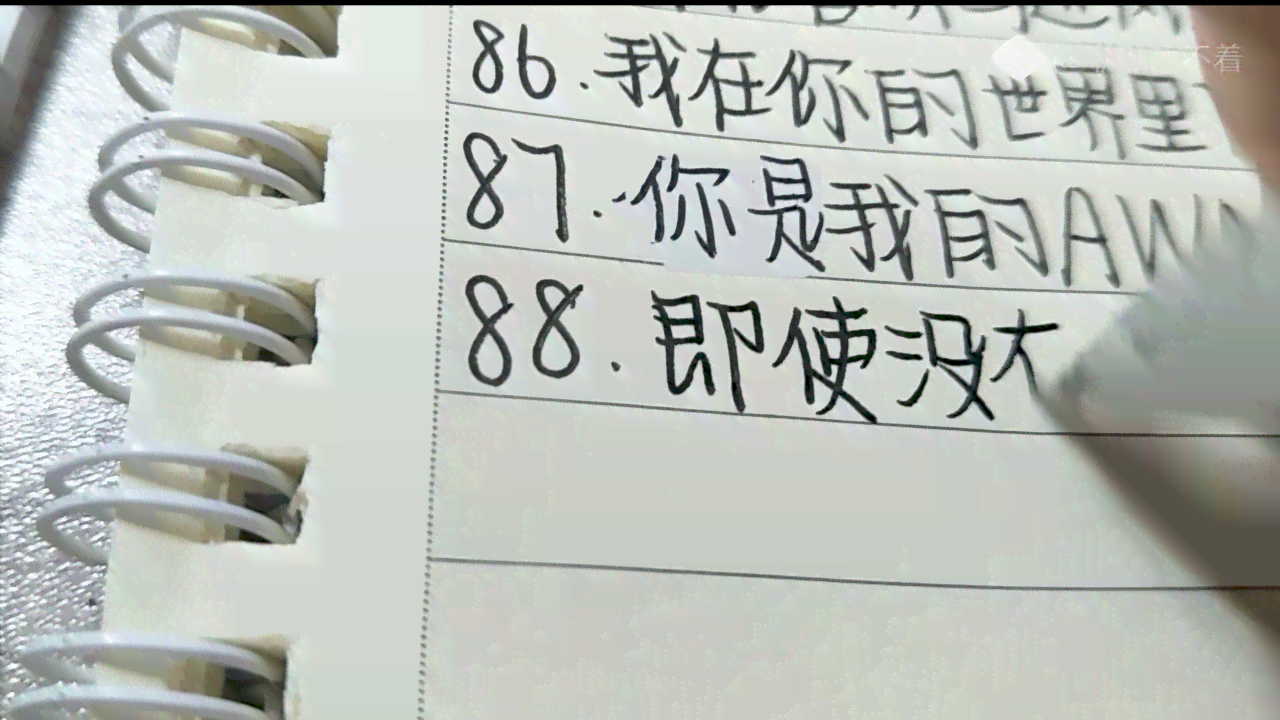 86.我在你的世界里
87.你是我的AW
88.即使没
不着